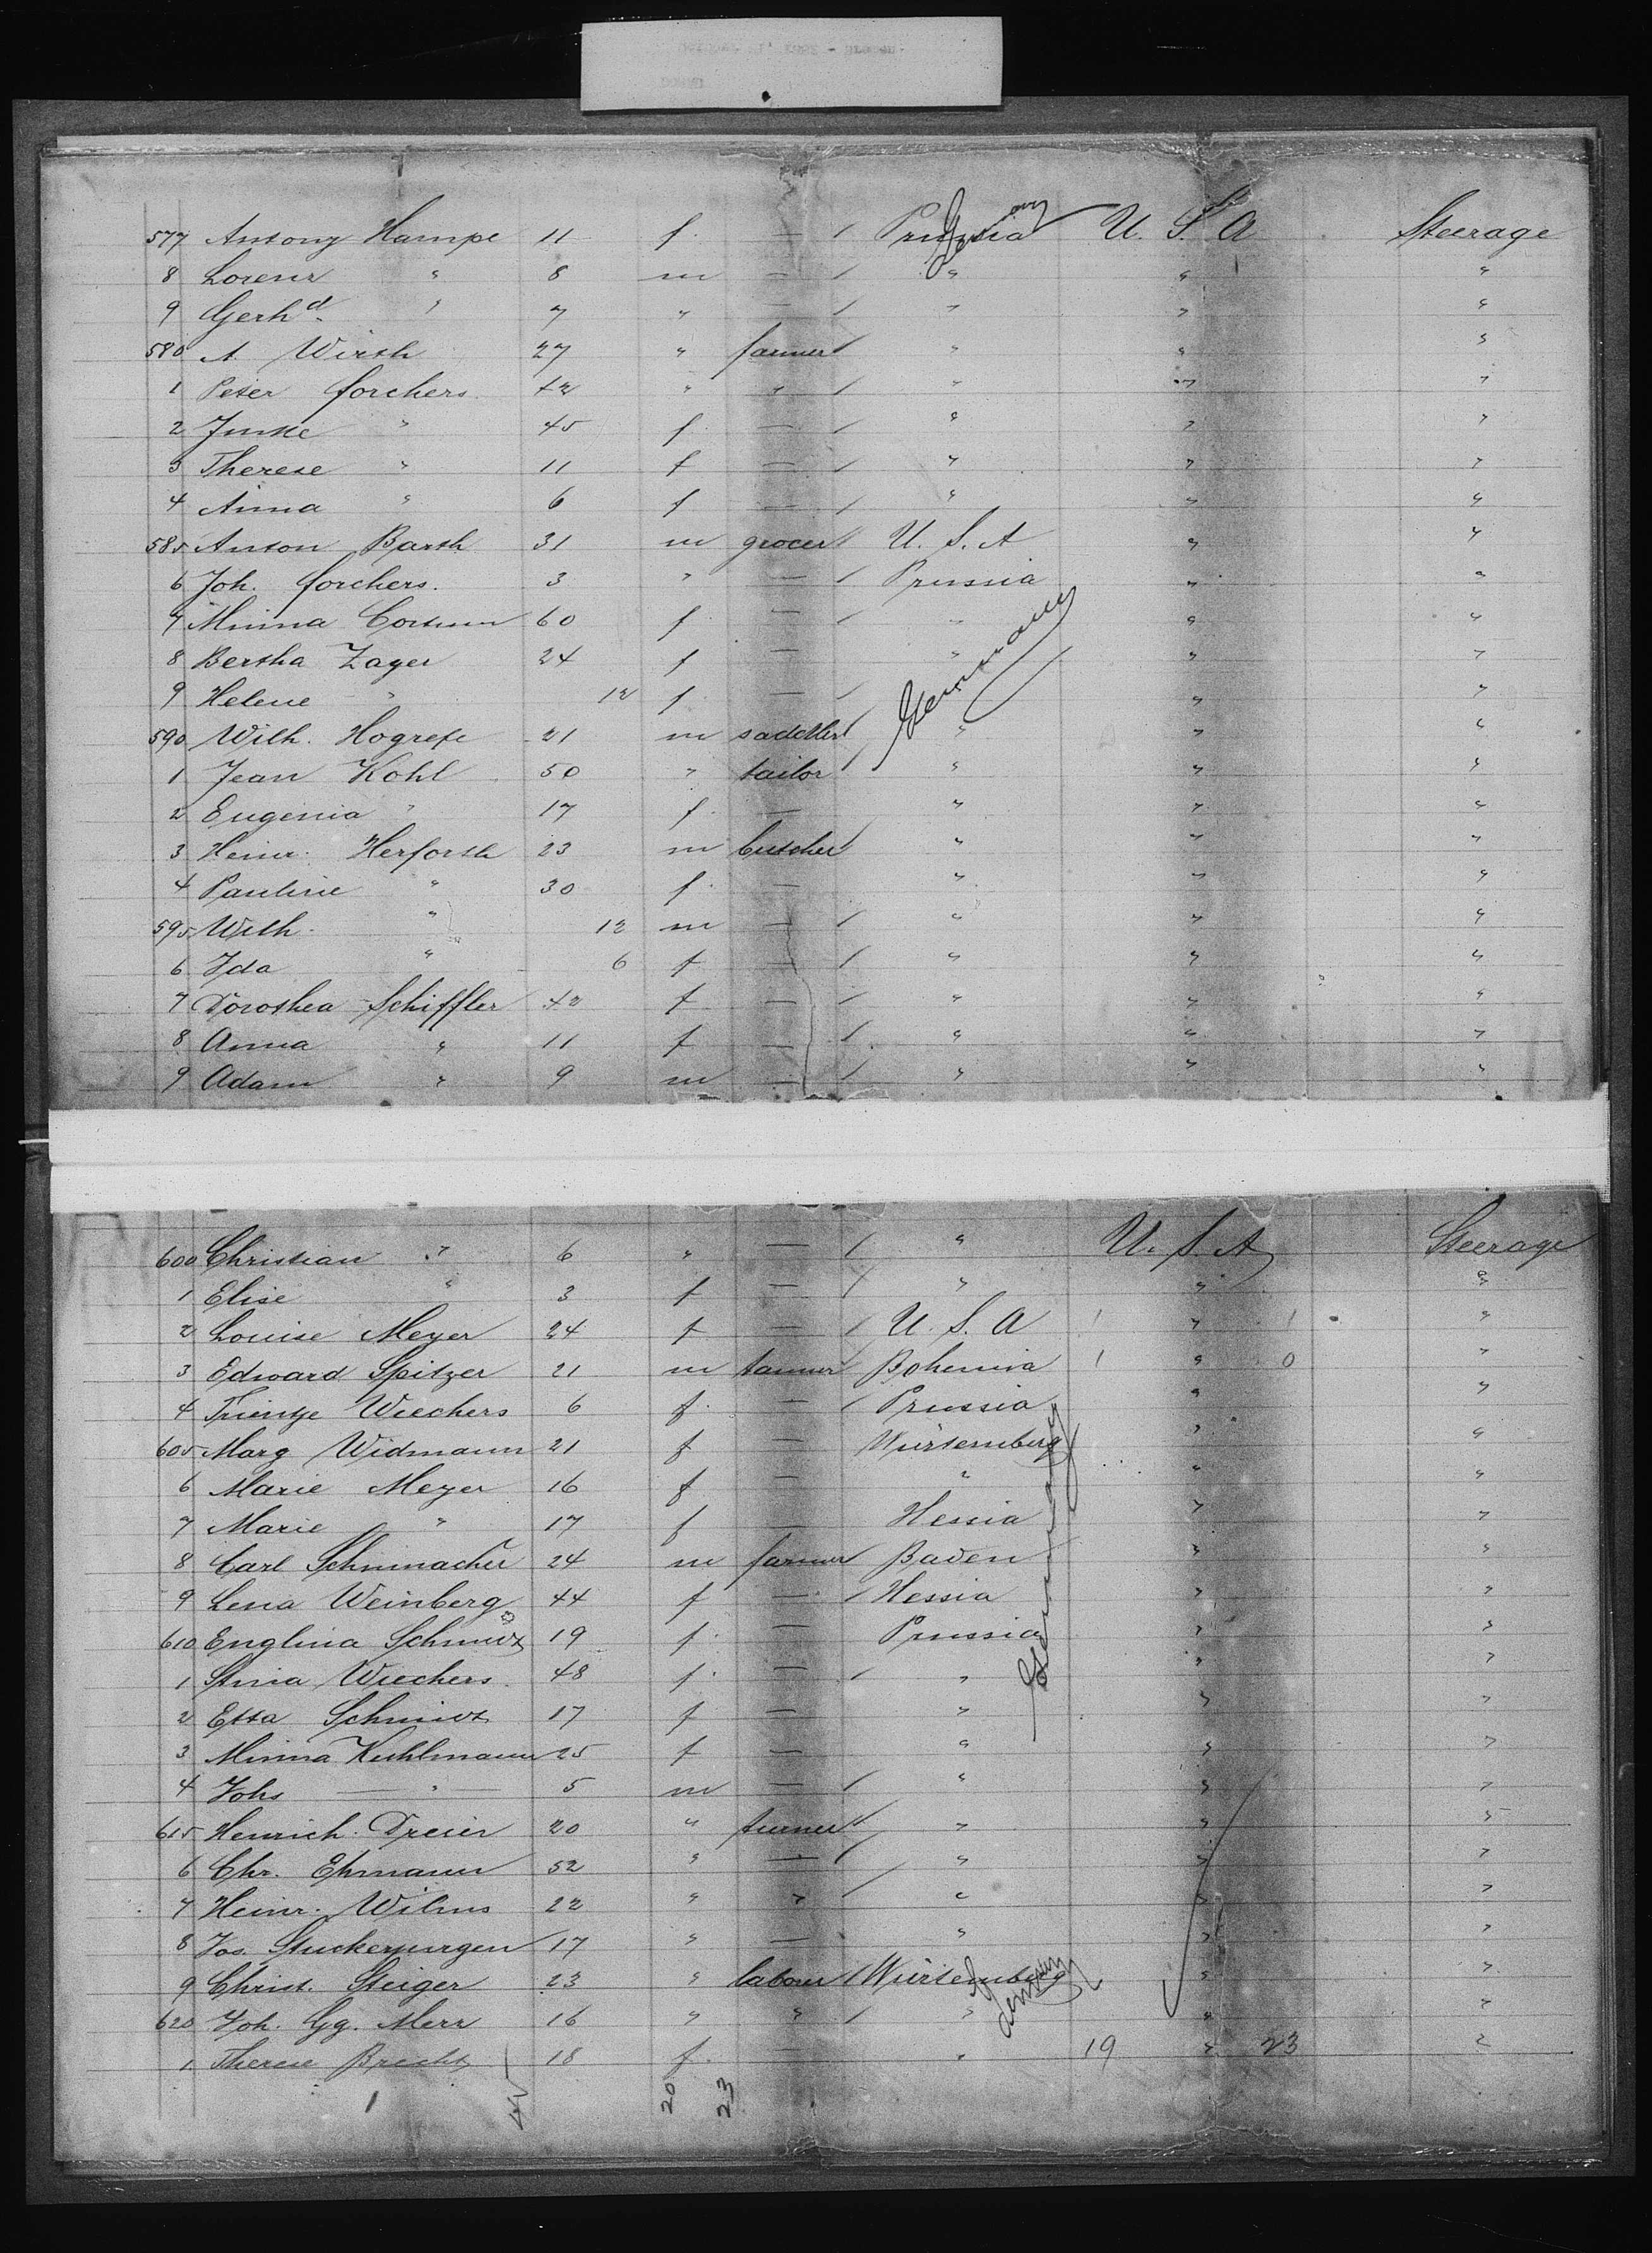 577 Antony Hampe 11 f. — / Prussia U. S. A Steerage
8 Lorenz " 8 m — / " " "
9 Gerhd. " 7 " — / " " "
580 A. Wirth 27 " farmer / " " "
1 Peter forchers 42 " " / " " "
2 Jinke " 45 f. — / " " "
3 Therese " 11 f — / " " "
4 Anna " 6 f — / " " "
585 Anton Barth 31 m grocer / U. S. A " "
6 Joh. forchers. 3 " — / Prussia " "
7 Minna 60 f — / " " "
8 Bertha Zager 24 f — " " "
9 Helene " 12 f. — / " " "
Germany
590 Wilh. Hogrefe 21 m saddler / " " "
1 Jean Kohl 50 " tailor / " " "
2 Eugenia " 17 f. — " " "
3 Heinr. Herforth 23 m butcher " " "
4 Pauline " 30 f. — " " "
595 Wilh. " 12 m — / " " "
6 Ida " 6 f — / " " "
7 Dorothea Schiffler 42 f — / " " "
8 Anna " 11 f — / " " "
9 Adam " 9 m — / " " "
600 Christian " 6 " — / " U. S. A Steerage
1 Elise " 3 f — / " " "
2 Louise Meyer 24 f — / U. S. A 1 " 1 "
3 Edward Spitzer 21 m tanner Bohemia 1 " 0 "
4 Trientje Wiechers 6 f. — / Prussia " "
605 Marg Widmann 21 f — Würtemberg " "
6 Marie Meyer 16 f — " " "
7 Marie " 17 f — Hessia " "
8 Carl Schumacher 24 m farmer Baden " "
9 Lena Weinberg 44 f — / Hessia " "
Germany
610 Englina Schmidt 19 f. — Prussia " "
1 Stina Wiechers. 48 f. — / " " "
2 Etta Schmidt 17 f — " " "
3 Minna Kuhlmann 25 f — " " "
4 Johs — " — 5 m — / " " "
615 Henrich Dreier 20 " turner / " " "
6 Chr. Ehmann 52 " — / " " "
7 Heinr. Wilms 22 " " / " " "
8 Jos. Stuckenjurgen 17 " — " " "
9 Christ. Steiger 23 " laborer / Würtemberg " "
Germany
620 Joh. Gg. Merz 16 " " / " " "
1 Therese Brecht 18 f. — " 19 " 23 "
1 45 20 23